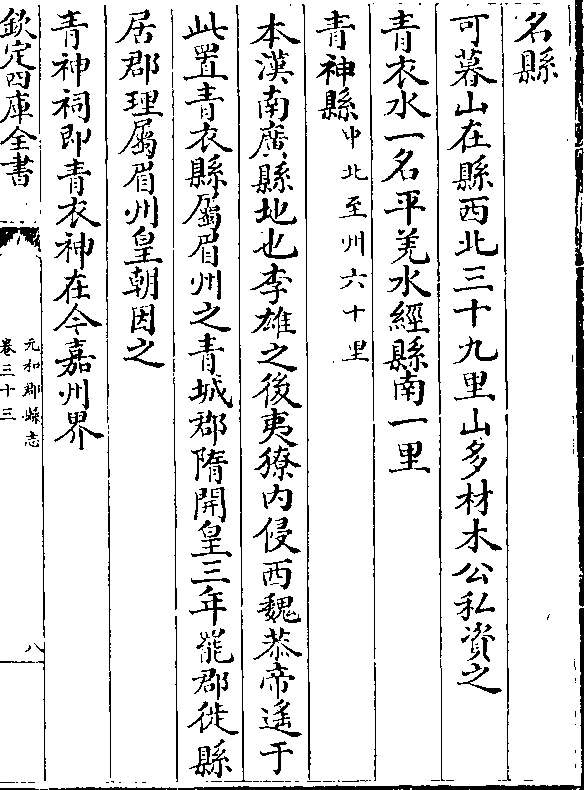 名縣
可暮山在縣西北三十九里山多材木公私資之
青衣水一名平羌水經縣南一里
青神縣中北至州六十里
本漢南廣縣地也李雄之後夷獠内侵西魏恭帝遙于
此置青衣縣屬眉州之青城郡隋開皇三年罷郡徙縣
居郡理屬眉州皇朝因之
青神祠即青衣神在今嘉州界
欽定四庫全書
元和郡縣志
卷三十三
八